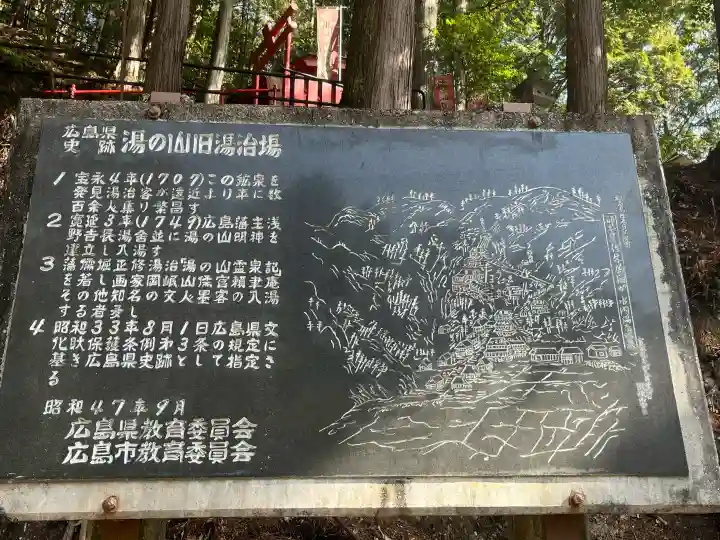 広島県
史跡
湯の山旧湯治場
1 宝永4年(1707)この鉱泉を
発見湯治客が遠近より年に数
百余人集り繁昌す
2 寛延3年(1749)広島藩主浅
野吉長湯舎並に湯の山明神を
建立し入湯す
3 藩儒堀正修湯治「湯の山霊泉記
を著し画家岡岷山儒官頼聿庵
その他知名の文人墨客の入湯
する者多し
4 昭和33年8月1日広島県文
化財保護条例第13条の規定に
基き広島県史跡として指定さ
る
昭和47年9月
広島県教育委員会
広島市教育委員会